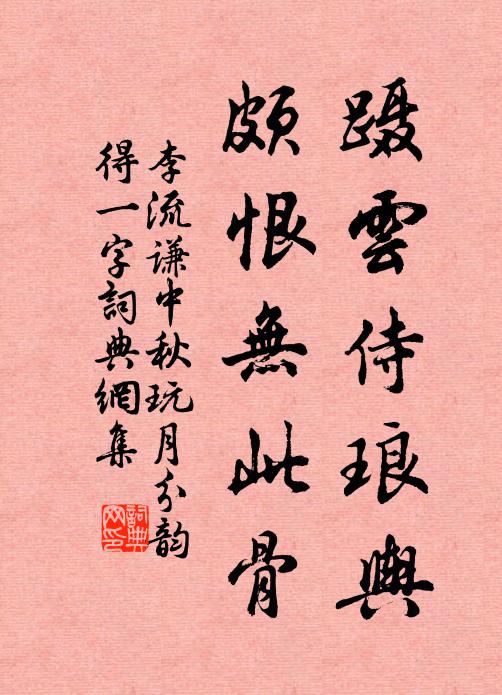 躡雲侍琅輿
頗恨無此骨
李流謙中秋玩月分韵
得一字詞典網集
詞典
网印